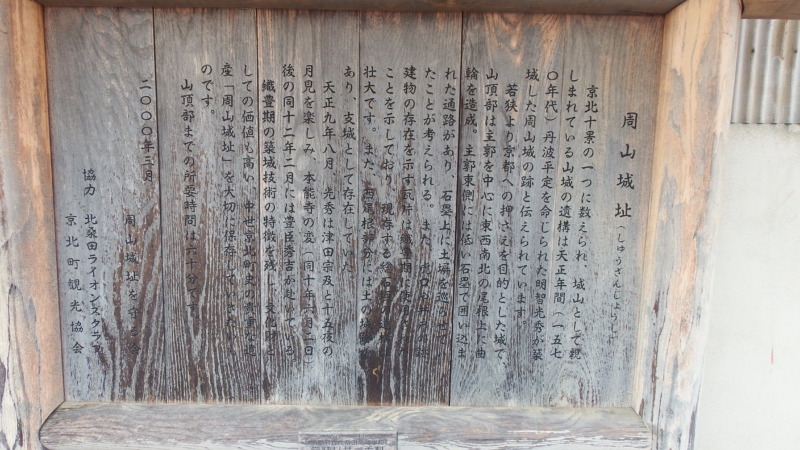 周山城址（しゅうざんじょうし）
京北十景の一つに数えられ、城山として親
しまれている山城の遺構は天正年間（一五七
〇年代）丹波平定を命じられた明智光秀が築
城した周山城の跡と伝えられています。
若狭より京都への押さえを目的とした城で、
山頂部は主郭を中心に東西南北の尾根上に曲
輪を造成。主郭東側には低い石塁で囲い込ま
れた通路があり、石塁上に土塀を巡らせて
たことが考えられる。また、
建物の存在を示す瓦片は織豊期に
ことを示しており、現存する総石
壮大です。また、西尾根部分には土の城
あり、支城として存在していた
天正九年八月 光秀は津田宗及と十五夜の
月見を楽しみ、本能寺の変（同十年六月二日）
後の同十二年二月には豊臣秀吉が赴いている
織豊期の築城技術の特徴を残し、文化財と
しての価値も高い、中世京北町史の貴重な遺
産「周山城址」を大切に保存していきたい
のです。
山頂部までの所要時間は六十分です。
二〇〇〇年三月
周山城址を守る会
協力 北桑田ライオンズクラブ
京北町観光協会